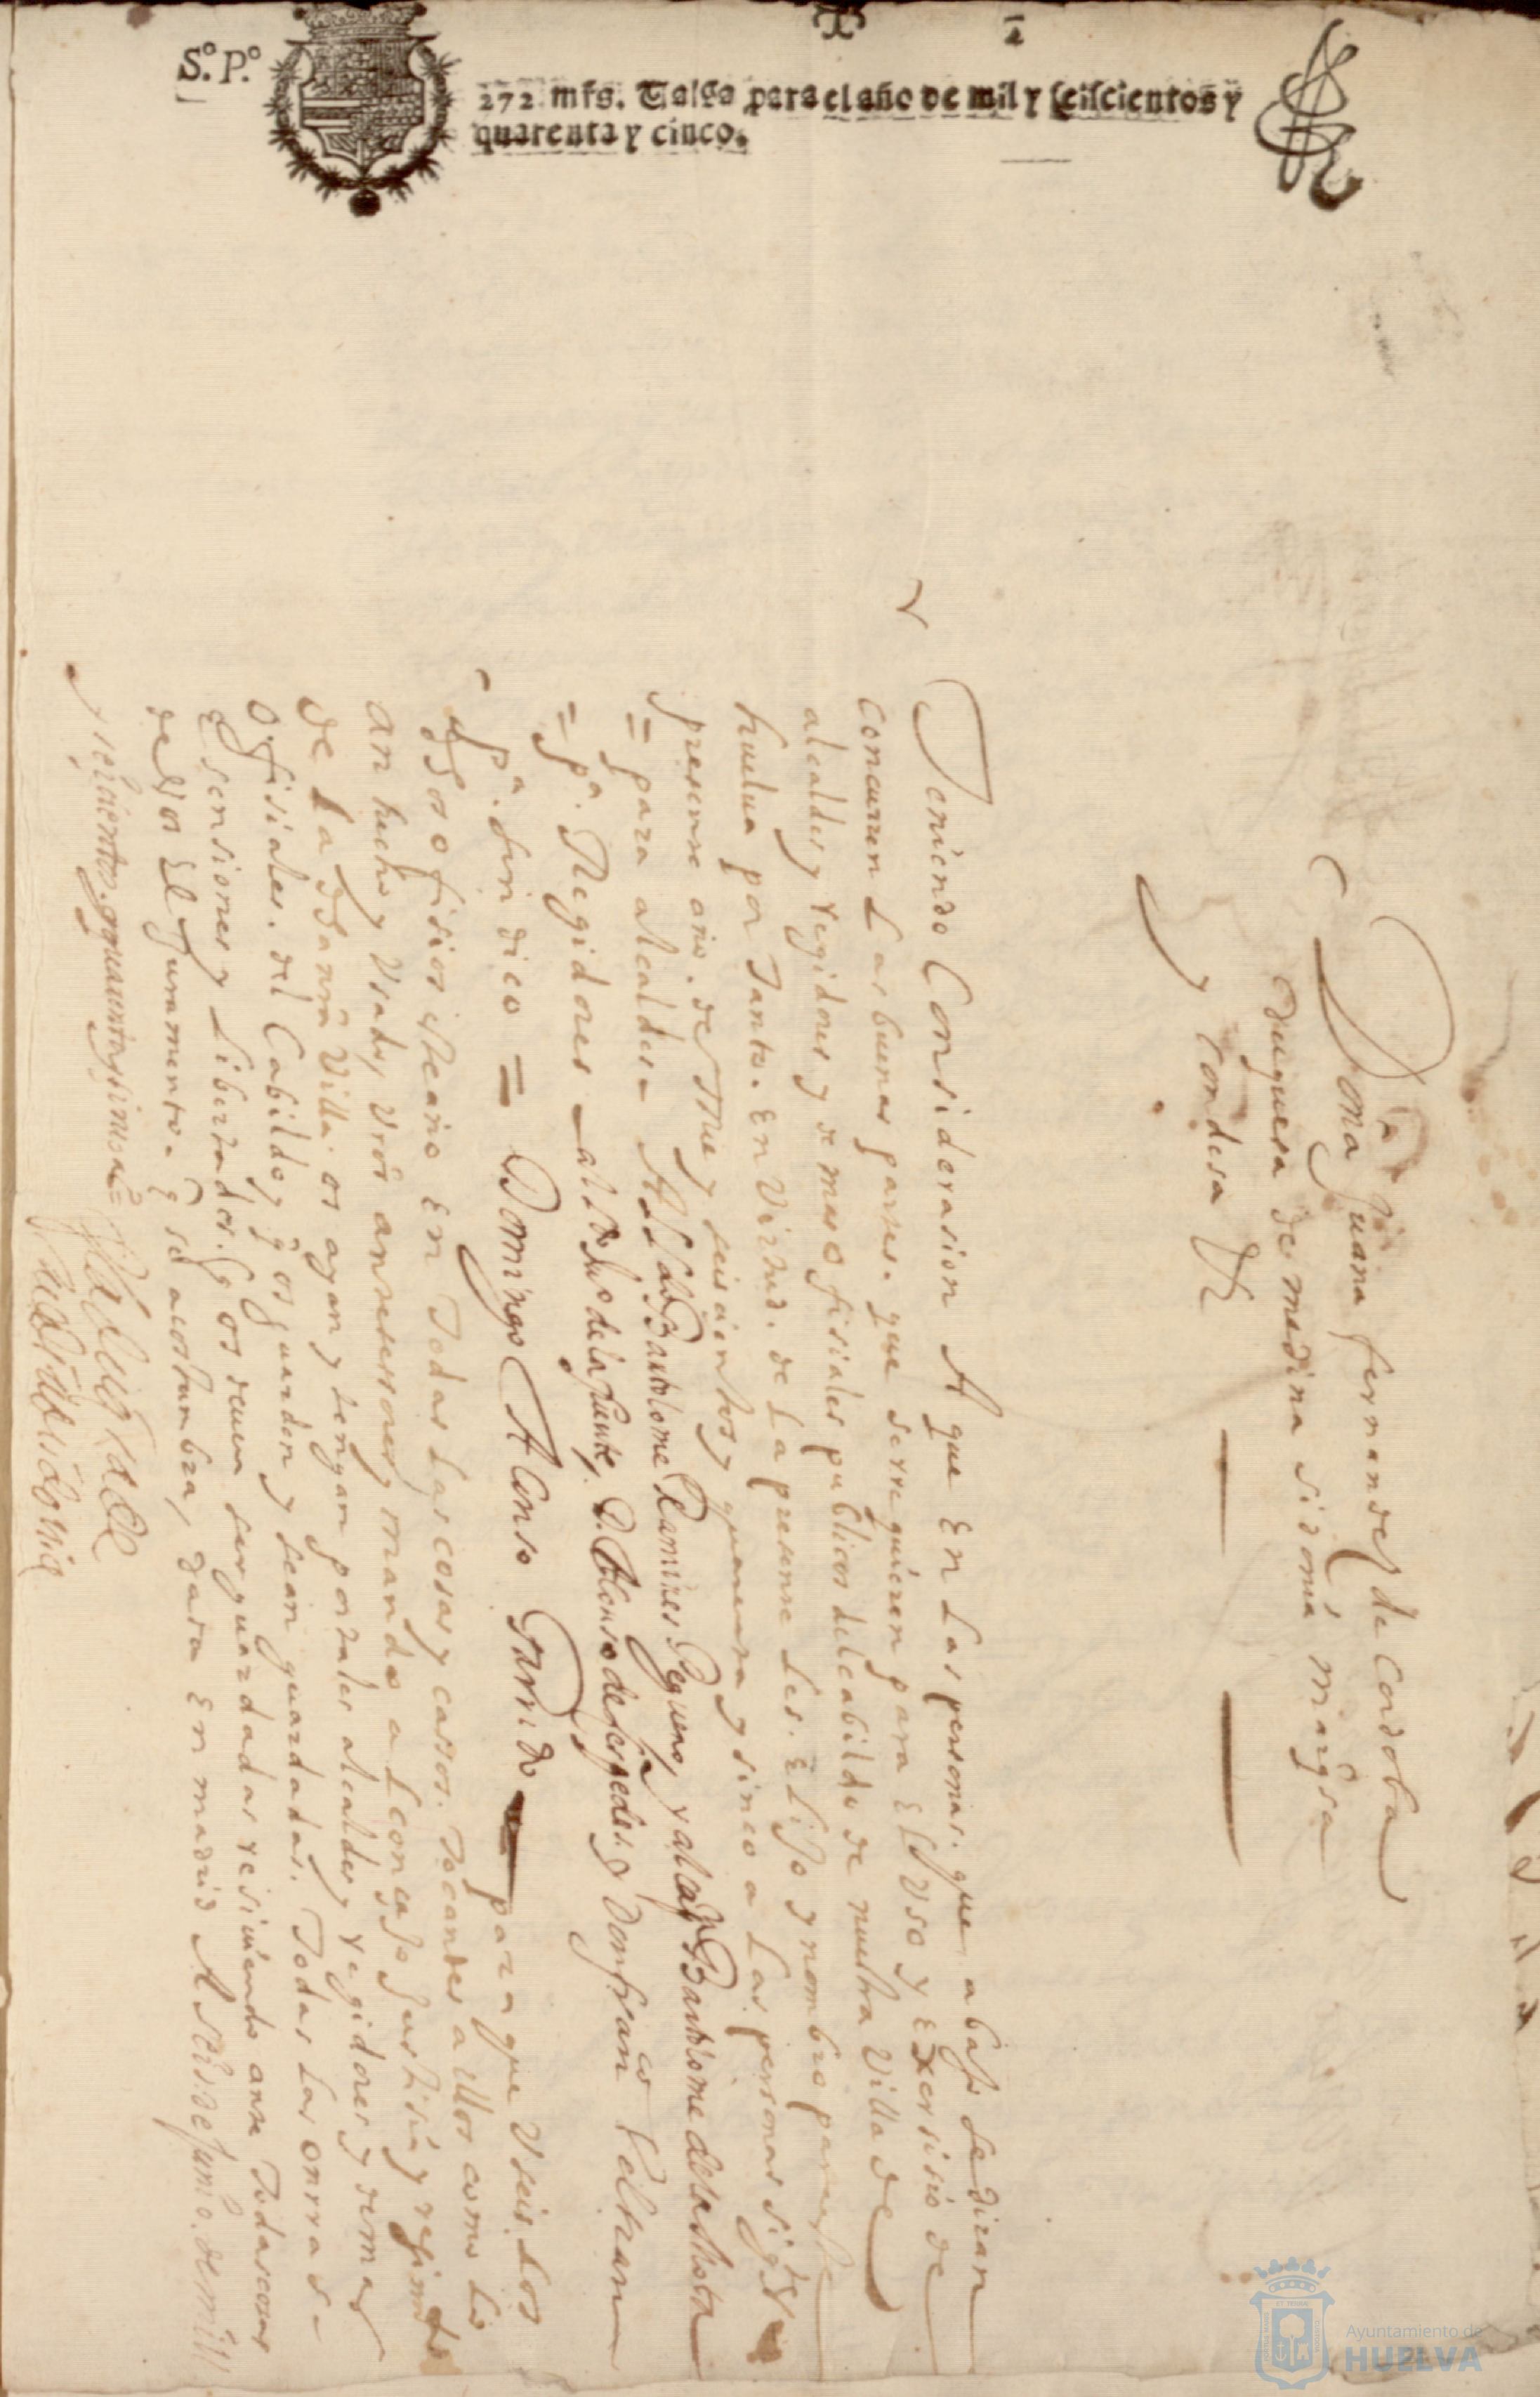 S.º P.º
272 mrs. Talla para el año de mil y seiscientos y
quarenta y cinco.
Doña Juana fernandes de Cordoba
duquesa de medina sidonia marqsa
y condesa &
Teniendo Considerasion A que En Las personas. que abajo se diran
concurren Las buenas partes. que se rrequieren para El Uso y Exersisio de
alcaldes y regidores y demas ofisiales publicos del cabildo de nuestra Villa de
huelua por Tanto. En Virtud. de La presente Les. Elijo y nombro para este
presente año. de Mil y seiscientos y quarenta y sinco a Las personas sigtes
= para alcaldes – Al Ldo Bartolome Ramires Pequeño, y al capn Bartolome de la
= pa. Regidores – al de la fuente, D. Alonso de sespedes, y Don franco Beltran
pa. sindico = Domingo Alonso Garrido para que Useis. Los
dhos ofisios este año En Todas Las cosas y cassos. Tocantes a ellos como Lo
an hecho y Usado, Uros antesesores y mando al consejo Justisia y regimto
de La dha mi Villa. os ayan y tengan por tales alcaldes y regidores y demas
ofisiales. del Cabildo y q os guarden y sean guardadas. Todas Las onrras –
Esensiones y Libertades. q os deuen ser guardadas resiuiendo ante Todas cosas
de Uos El Juramento. q se acostumbra, dada En madrid A seis de Junio. de mill
y seiscientos. y quarenta y sinco as =
La duq
Ayuntamiento de
HUELVA